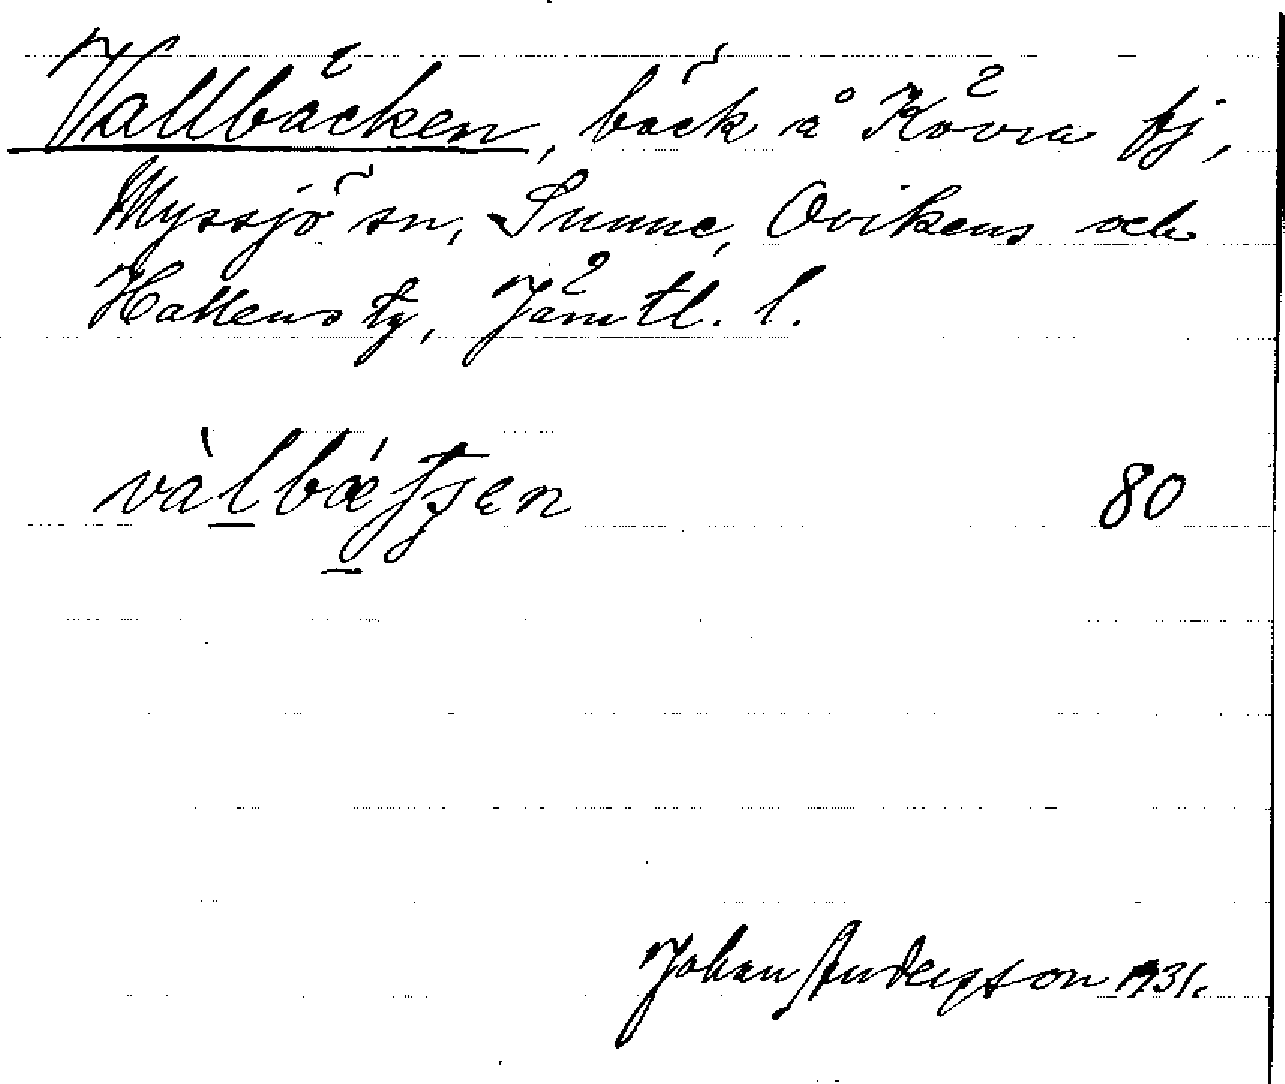 Vallbäcken, bäck å Kövra fj,
Myssjö sn, Sunne, Ovikens och
Hallens tg, Jämtl. l.
80
Johan Anderzson 1931.